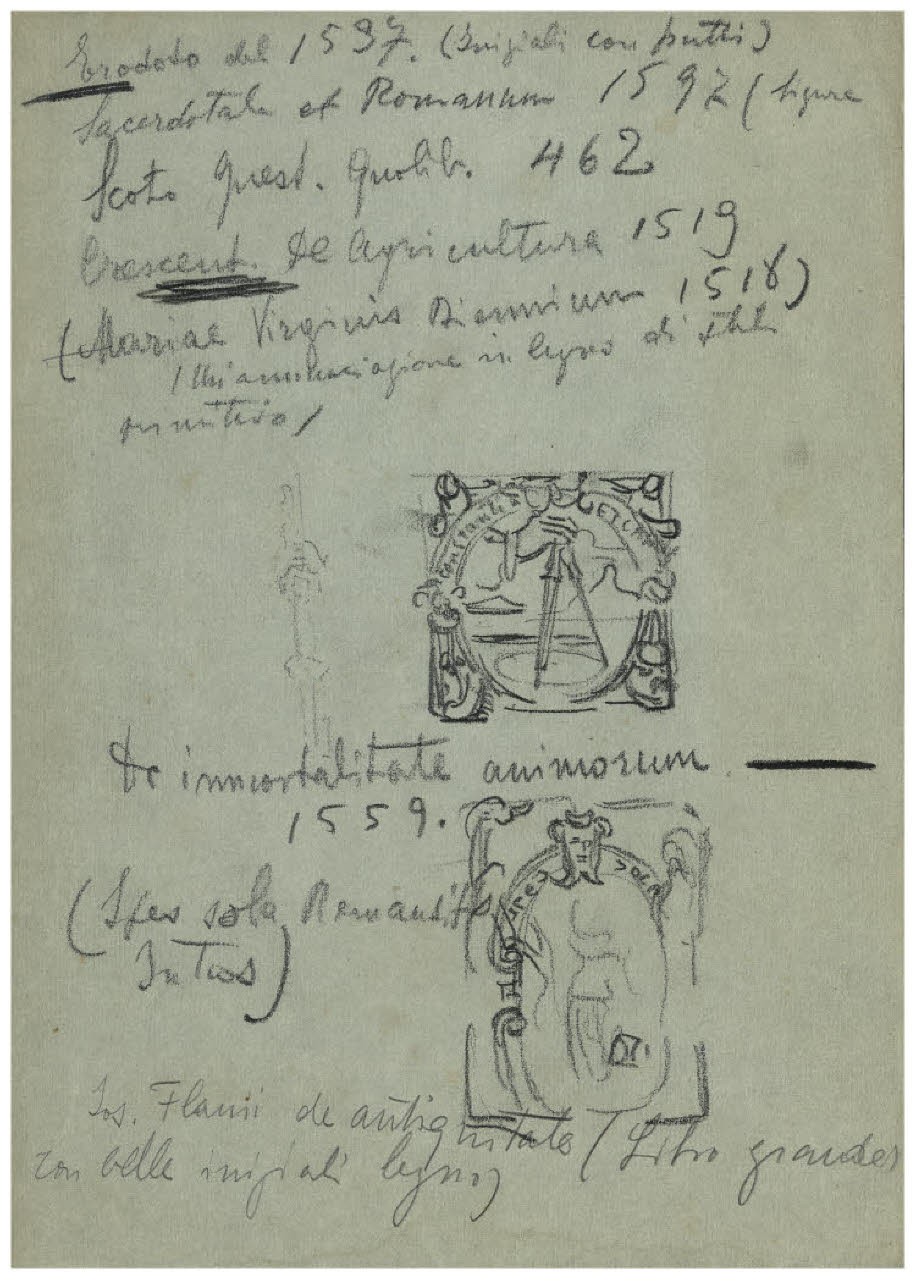 Erodoto del 1537. (Iniziali con putti)
Sacerdotale et Romanum 1597 (figure
Scoto Quest. Quolib. 462
Crescent. De Agricultura 1519
(Mariae Virginis 1518)
in legno di
primitivo)
CONSTANTIA
De immortalitate animorum.
1559.
SPES SOLA
(Spes sola Remansit
Intus)
Ios. Flavii de antiquitate (Libro grande
con belle iniziali legno)